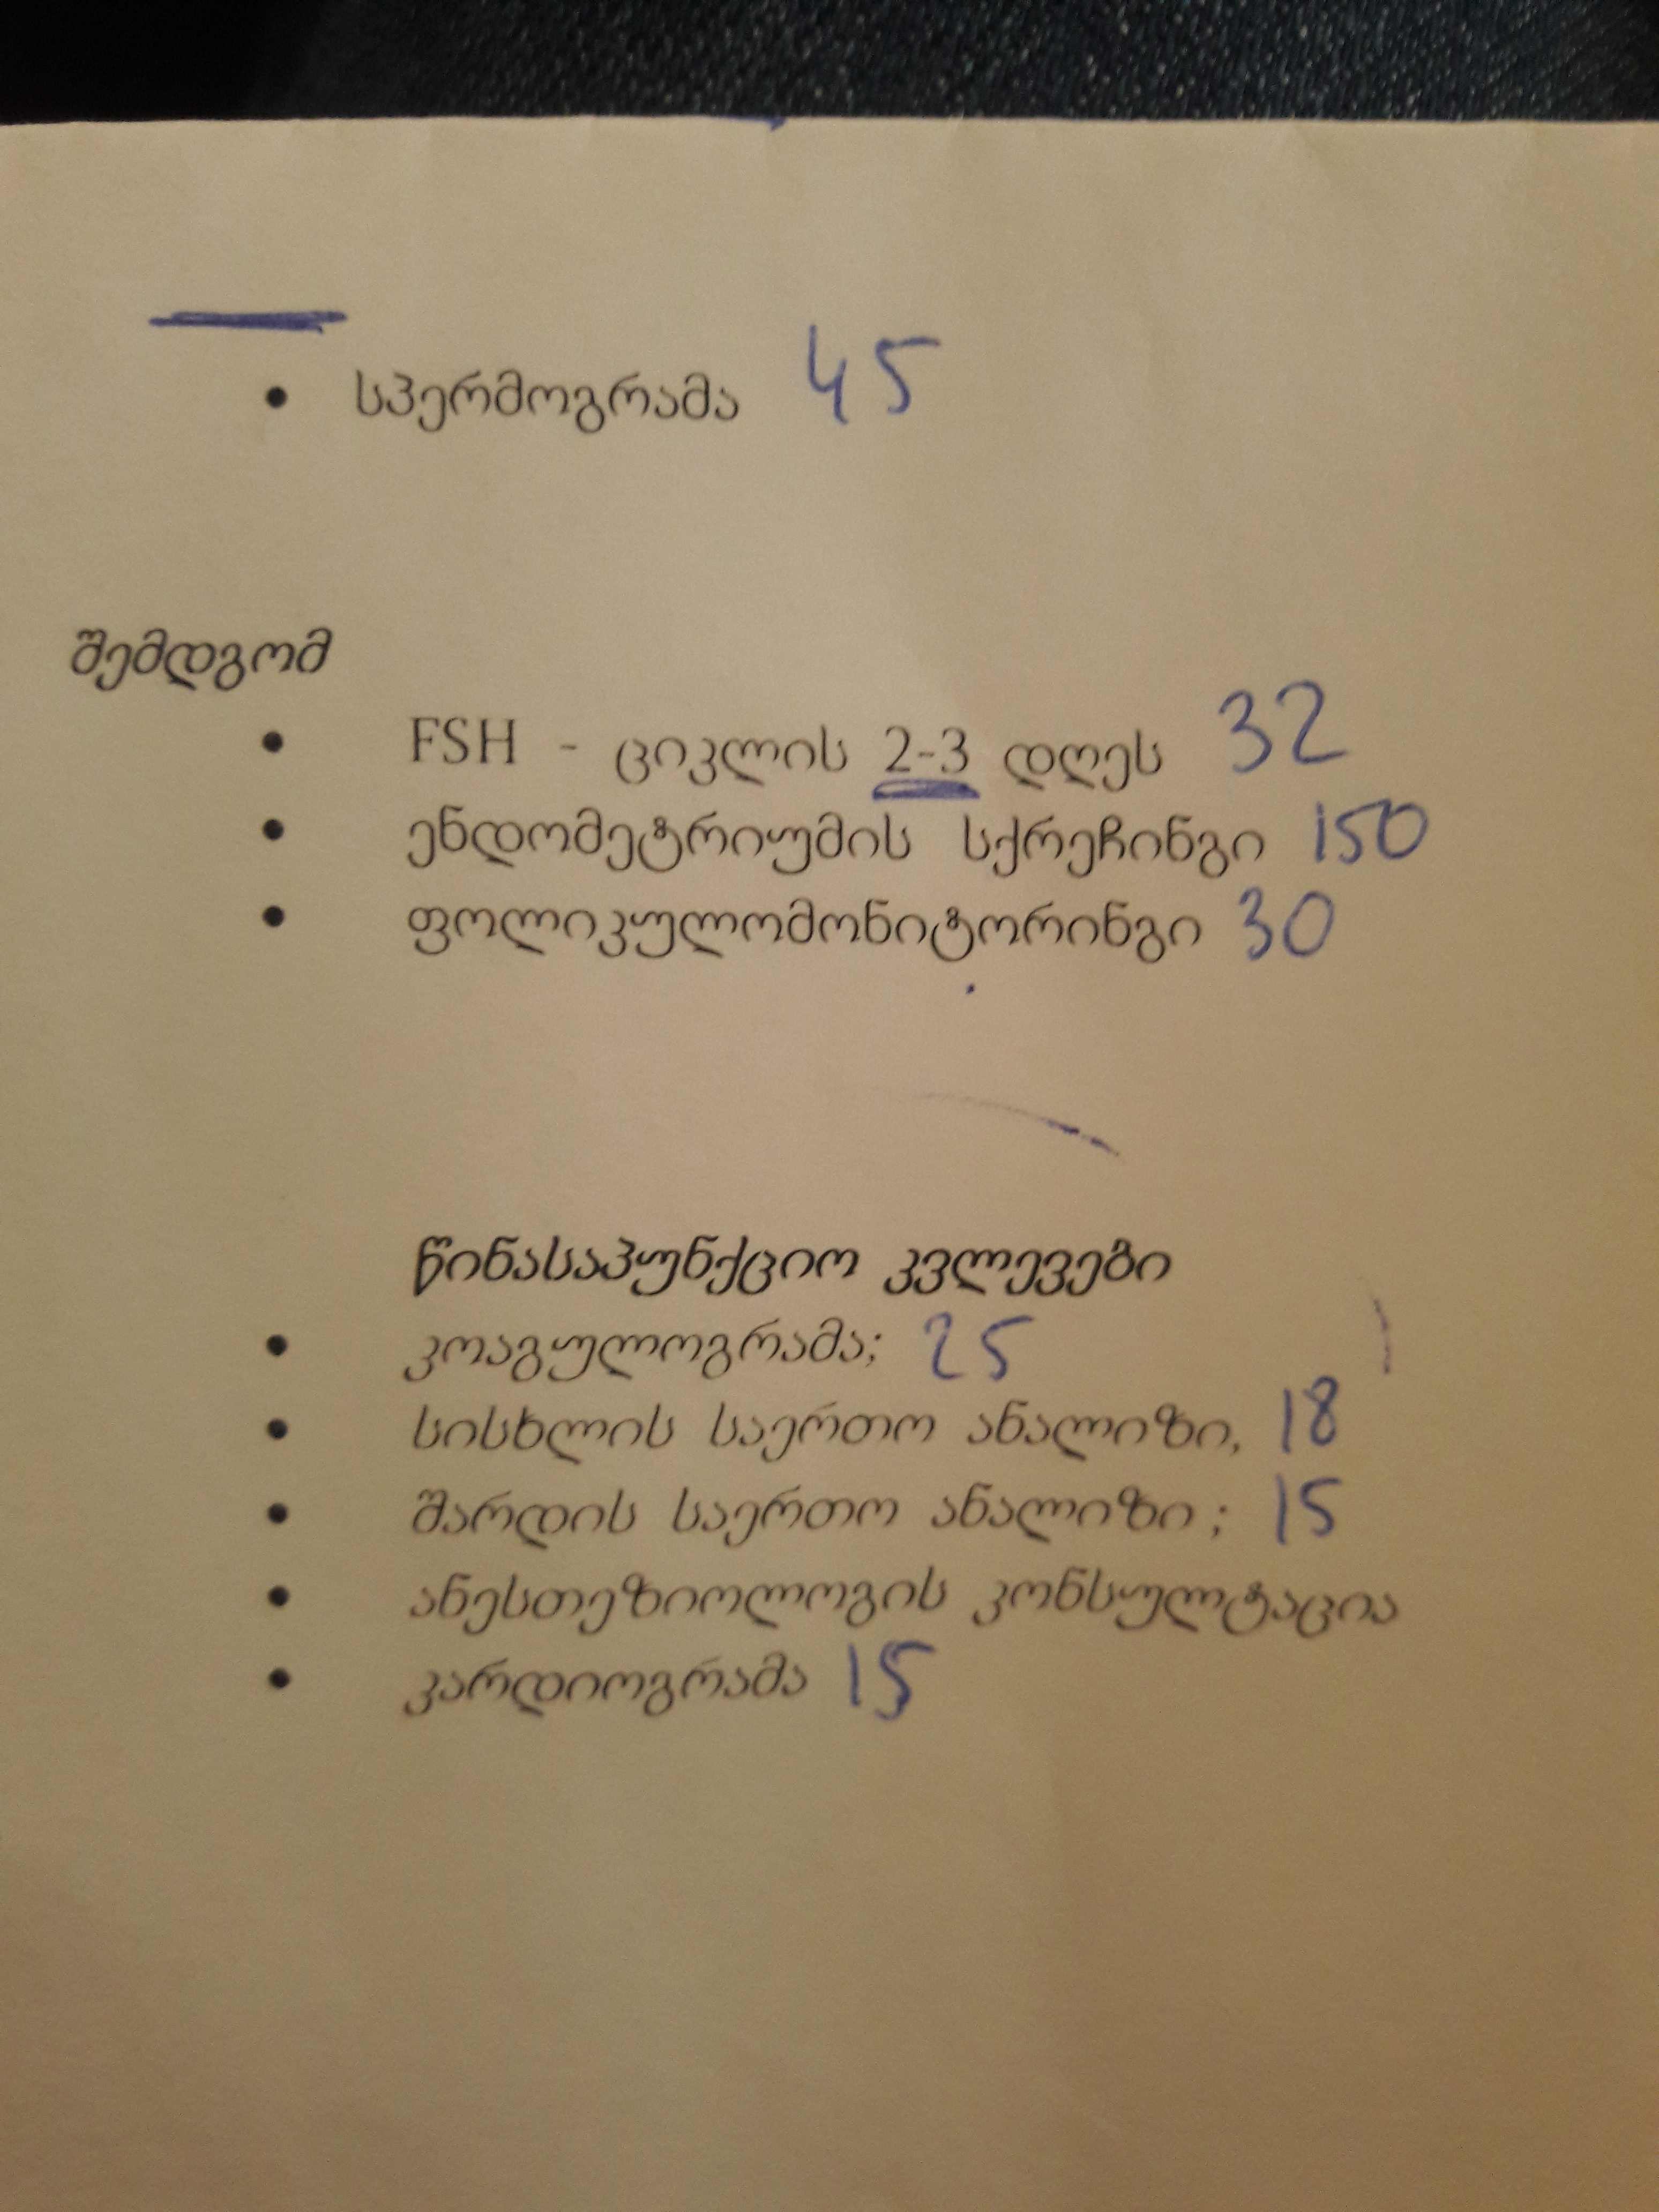 • სპერმოგრამა 45
შემდგომ
• FSH - ციკლის 2-3 დღეს 32
• ენდომეტრიუმის სქრეჩინგი 150
• ფოლიკულომონიტორინგი 30
წინასაპუნქციო კვლევები
• კოაგულოგრამა; 25
• სისხლის საერთო ანალიზი, 18
• შარდის საერთო ანალიზი ; 15
• ანესთეზიოლოგის კონსულტაცია
• კარდიოგრამა 15